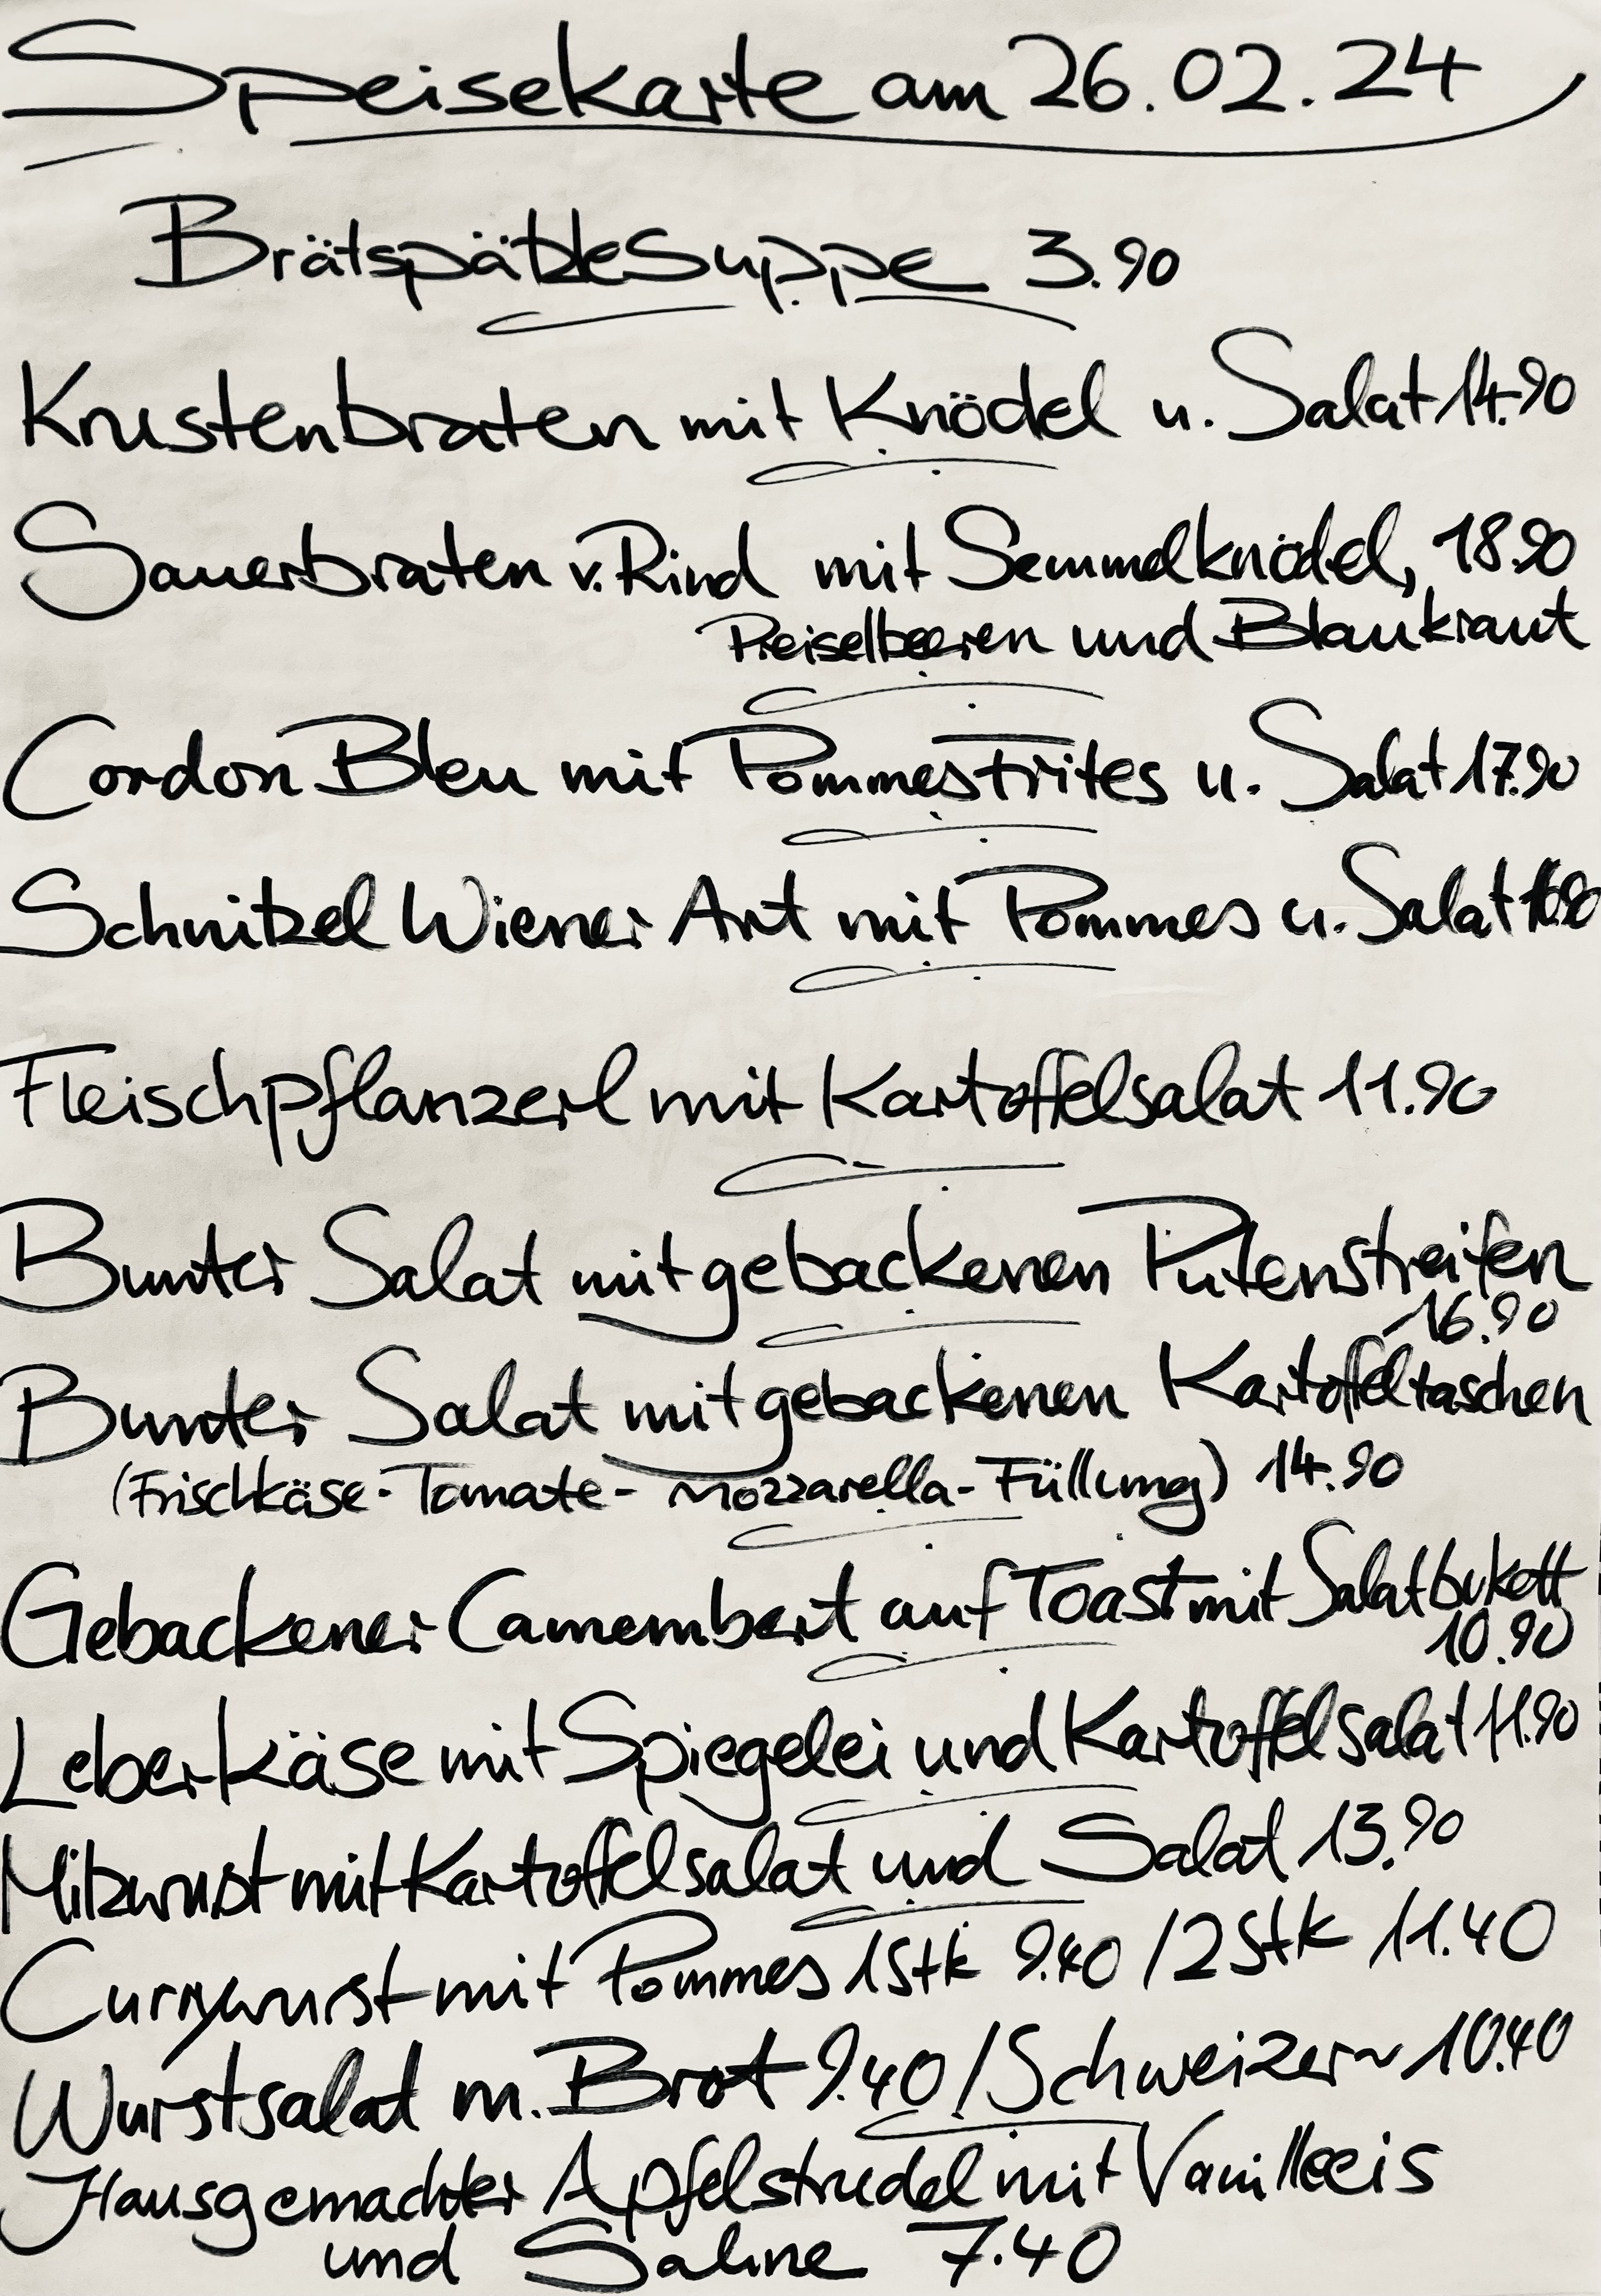 Speisekarte am 26.02.24
Brätspätzlesuppe 3.90
Krustenbraten mit Knödel u. Salat 14.90
Sauerbraten v. Rind mit Semmelknödel, 18.90
Preiselbeeren und Blaukraut
Cordon Bleu mit Pommes frites u. Salat 17.90
Schnitzel Wiener Art mit Pommes u. Salat
Fleischpflanzerl mit Kartoffelsalat 11.90
Bunter Salat mit gebackenen Putenstreifen
16.90
Bunter Salat mit gebackenen Kartoffeltaschen
(Frischkäse-Tomate-Mozzarella-Füllung) 14.90
Gebackener Camembert auf Toast mit Salatbukett
10.90
Leberkäse mit Spiegelei und Kartoffelsalat 11.90
Milzwurst mit Kartoffelsalat und Salat 13.90
Currywurst mit Pommes 1 Stk 9.40 / 2 Stk 11.40
Wurstsalat m. Brot 9.40 / Schweizer~ 10.40
Hausgemachter Apfelstrudel mit Vanilleeis
und Sahne 7.40